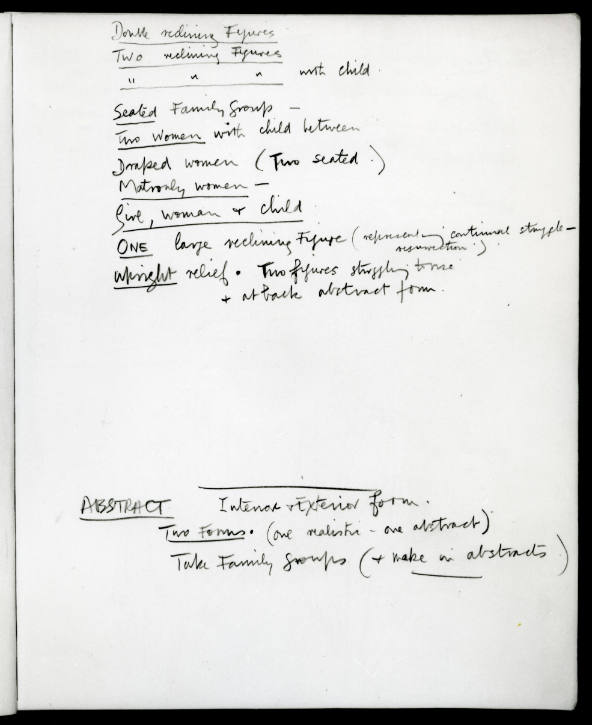 Double reclining Figures
Two reclining Figures
" " " with child.
Seated Family Group –
Two Women with child between
Draped women (Two seated.)
Matronly women –
Girl, woman + child
ONE large reclining Figure (representing continual struggle –
resurrection.)
Upright relief. Two figures struggling to rise
+ at back abstract form.
ABSTRACT Interior & Exterior form.
Two Forms. (one realistic – one abstract)
Take Family Groups (+ make in abstracts)